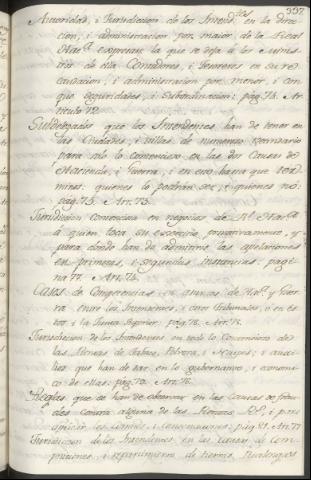 337
Autoridad, i Jurisdiccion de los Intend.tes en la direc-
cion, i administracion por maior de la Real
Haz.da expresan la que se deja á los Minis-
tros de ella Contadores, i Tesoreros en su re
caudacion, i administracion por menor, i con
que seguridades, i subordinacion: pag. 73. Ar-
ticulo 72.
Subdelegados que los Intendentes han de tener en
las Ciudades, i villas de numeroso
para solo lo contencioso en las dos Causas de
Hacienda, i Guerra, i en otro hasta que
quienes lo podrán ser, i quienes no:
pag. 75. Art. 73.
Jurisdiccion contenciosa en negocios de R.l Haz.da
á quien toca su exercicio privativamente, y
para donde han de admitirse las apelaciones
en primera, i segundas instancias. pagi-
na 77. Art. 74.
Casos de Competencias en asuntos de Haz.da y Guer-
ra entre los Intendentes, i otros tribunales, i en es-
tos i la Junta Superior: pag. 78. Art. 75.
Jurisdiccion de los Intendentes en todo lo Contencioso de
las Rentas de Tabaco, Polvora, i Naypes; i auxi-
lios que han de dar en lo gubernativo, i economi-
co de ellas: pag. 79. Art. 76.
Reglas que se han de observar en las Causas de frau-
des contra alguna de las Rentas R.s, i para
aplicar los Comisos, i pag. 81. Art. 77
Jurisdiccion de los Intendentes en las Causas de Com-
posiciones, i repartimientos de tierras, Realengos